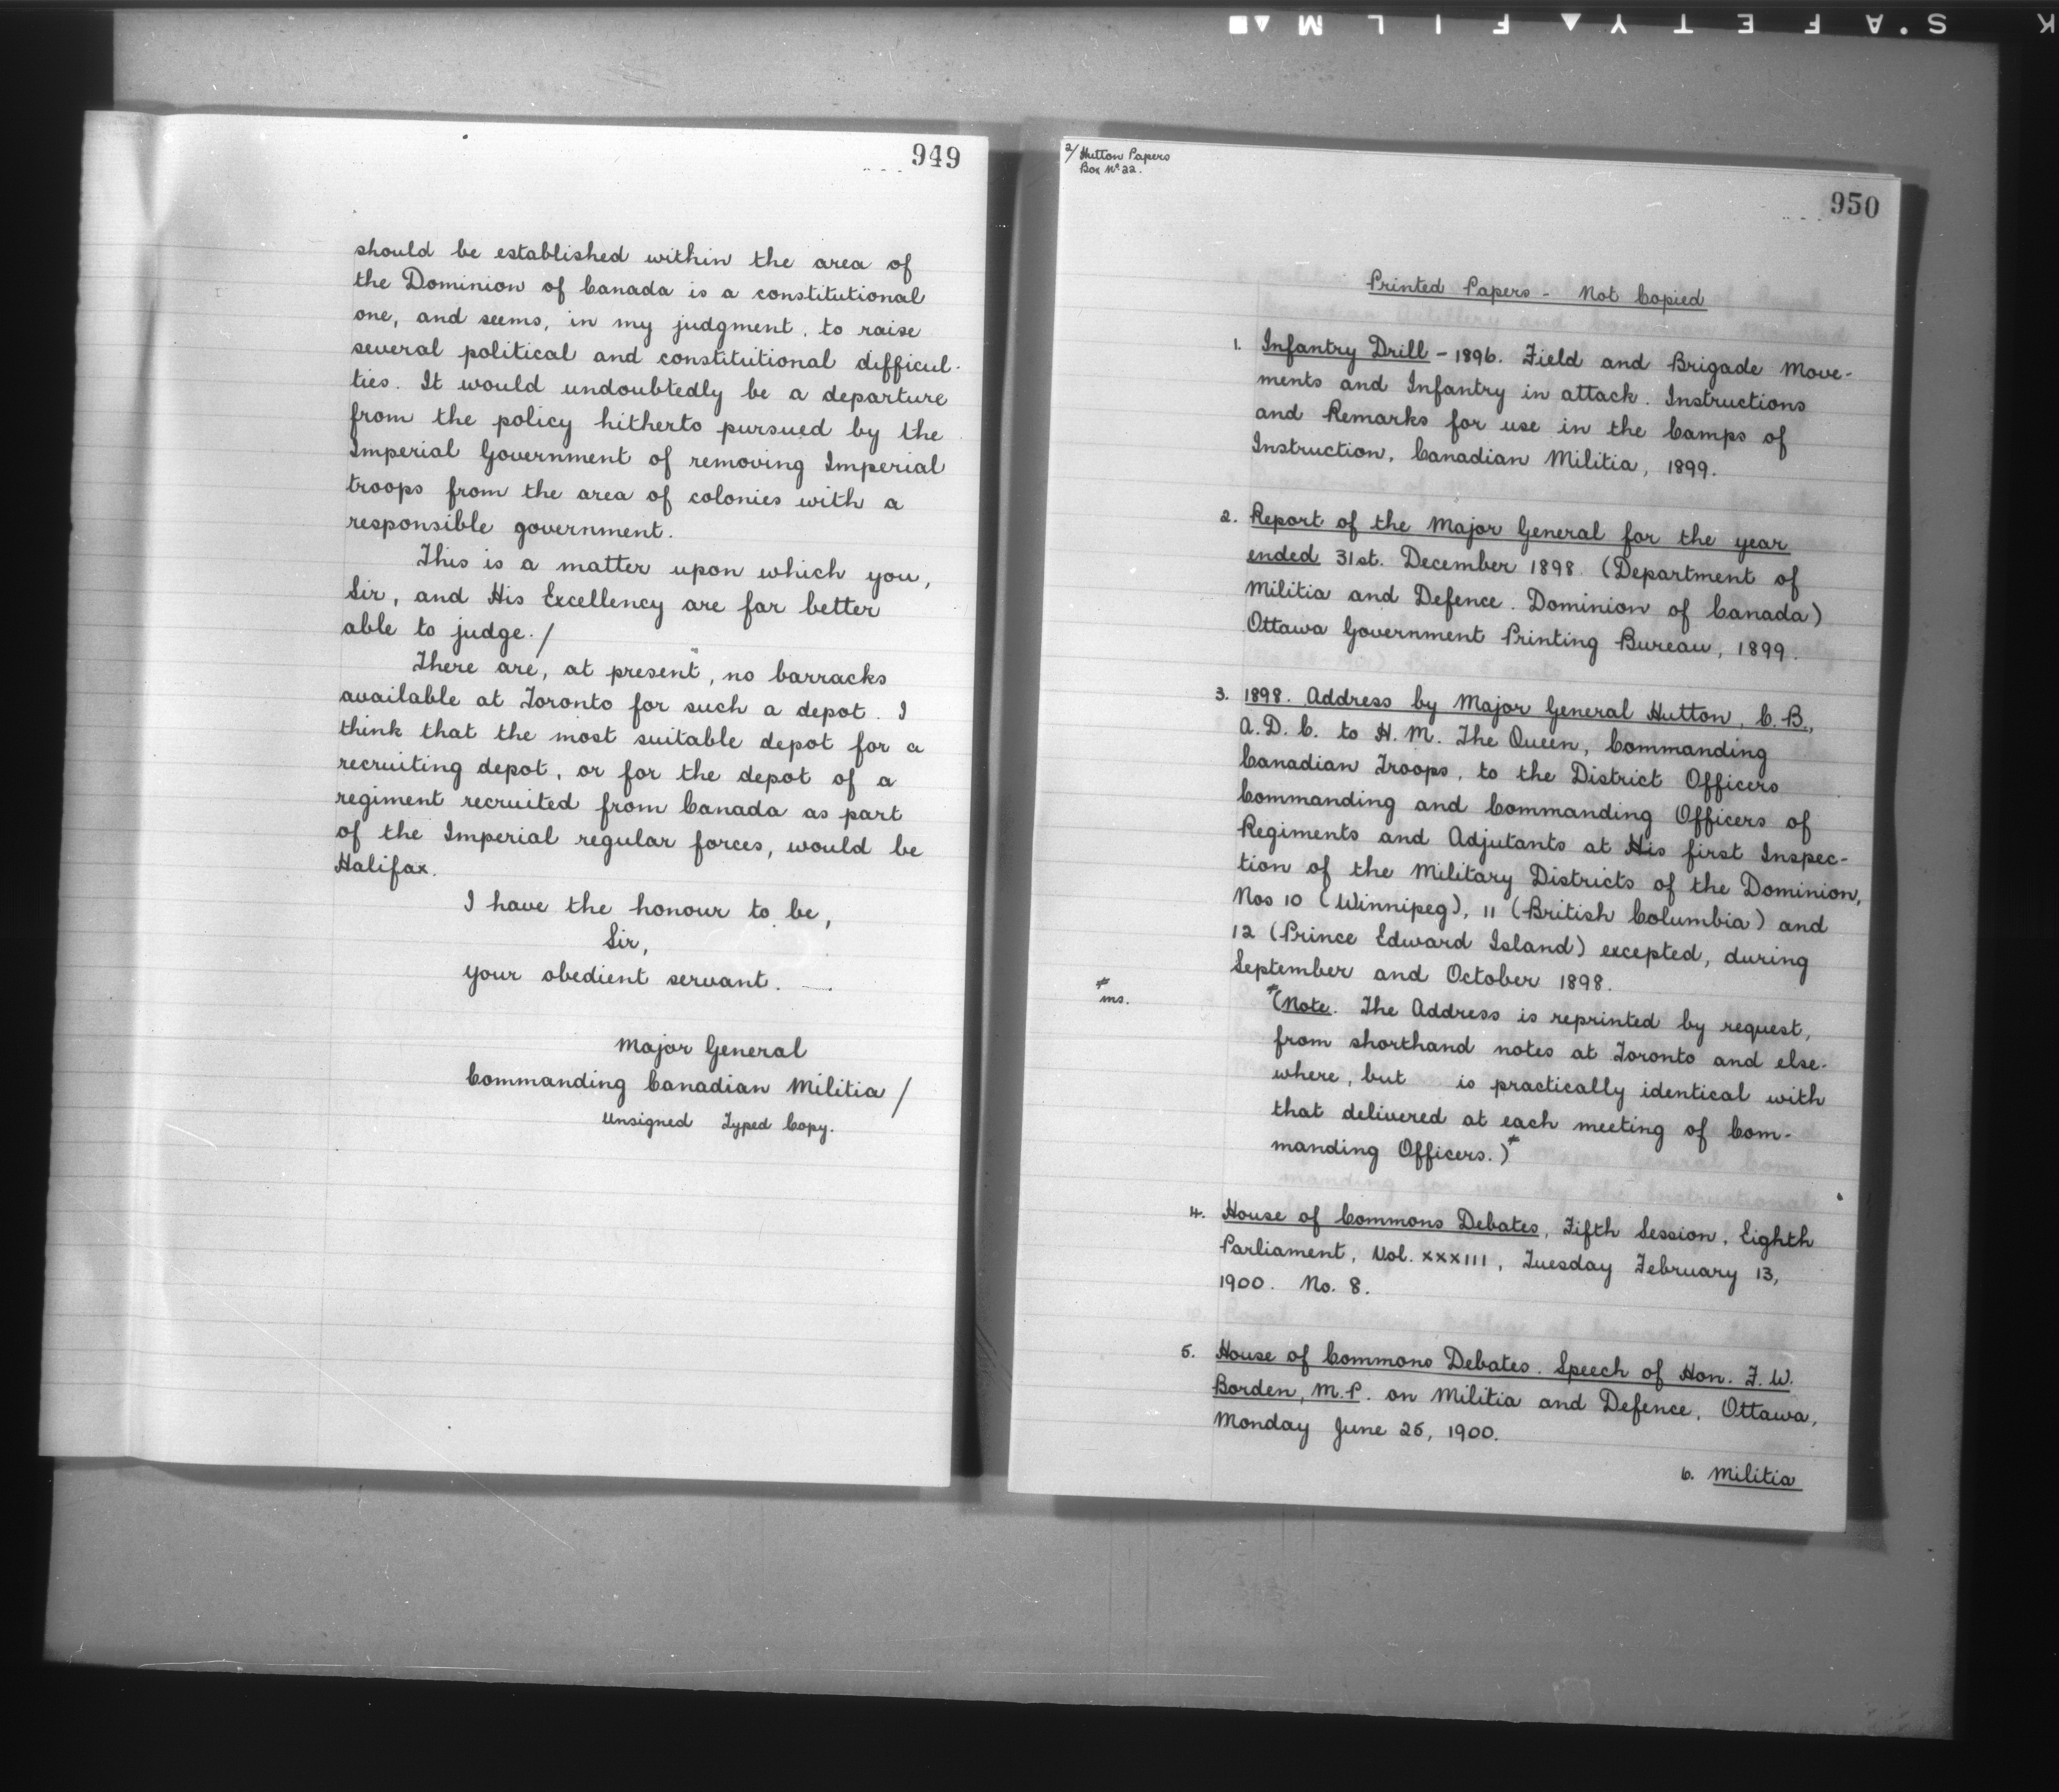 949
should be established within the area of
the Dominion of Canada is a constitutional
one, and seems, in my judgment, to raise
several political and constitutional difficul-
ties. It would undoubtedly be a departure
from the policy hitherto pursued by the
Imperial Government of removing Imperial
troops from the area of colonies with a
responsible government.
This is a matter upon which you,
Sir, and His Excellency are far better
able to judge./
There are, at present, no barracks
available at Toronto for such a depot. I
think that the most suitable depot for a
recruiting depot, or for the depot of a
regiment recruited from Canada as part
of the Imperial regular forces, would be
Halifax.
I have the honour to be,
Sir,
Your obedient servant.
Major General
Commanding Canadian Militia/
Unsigned Typed Copy.
2/ Hutton Papers
Box No 22.
950
Printed Papers - Not Copied
1. Infantry Drill - 1896. Field and Brigade Move-
ments and Infantry in attack. Instructions
and Remarks for use in the Camps of
Instruction, Canadian Militia, 1899.
2. Report of the Major General for the year
ended 31st. December 1898. (Department of
Militia and Defence. Dominion of Canada)
Ottawa Government Printing Bureau, 1899.
3. 1898. Address by Major General Hutton, C.B.,
A.D.C. to H.M. The Queen, Commanding
Canadian Troops, to the District Officers
Commanding and Commanding Officers of
Regiments and Adjutants at His first Inspec-
tion of the Military Districts of the Dominion,
Nos 10 (Winnipeg), 11 (British Columbia) and
12 (Prince Edward Island) excepted, during
September and October 1898.
≠
ms.
≠(Note. The Address is reprinted by request,
from shorthand notes at Toronto and else-
where, but is practically identical with
that delivered at each meeting of Com-
manding Officers.)≠
4. House of Commons Debates, Fifth Session, Eighth
Parliament, Vol. XXXIII, Tuesday February 13,
1900. No. 8.
5. House of Commons Debates. Speech of Hon. F.W.
Borden, M.P. on Militia and Defence, Ottawa,
Monday June 25, 1900.
6. Militia
K S'AFETY▲FILM